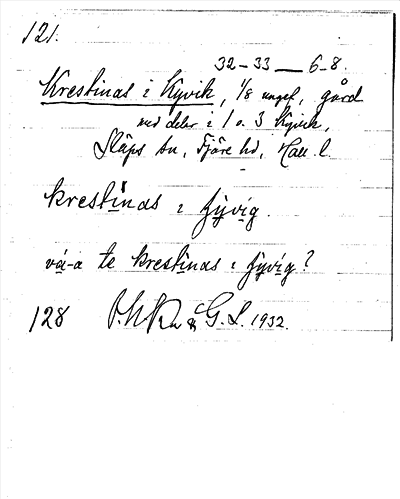 121.
32-33 — 6-8.
Krestinas i Kyvik, 1/8 ungef. gård
med delar i 1 o. 3 Kyvik,
Släps sn, Fjäre hd, Hall. l.
krestinas i ʃyvig.
vá-a te krestinas i ʃyvig?
128 & G. L. 1932.